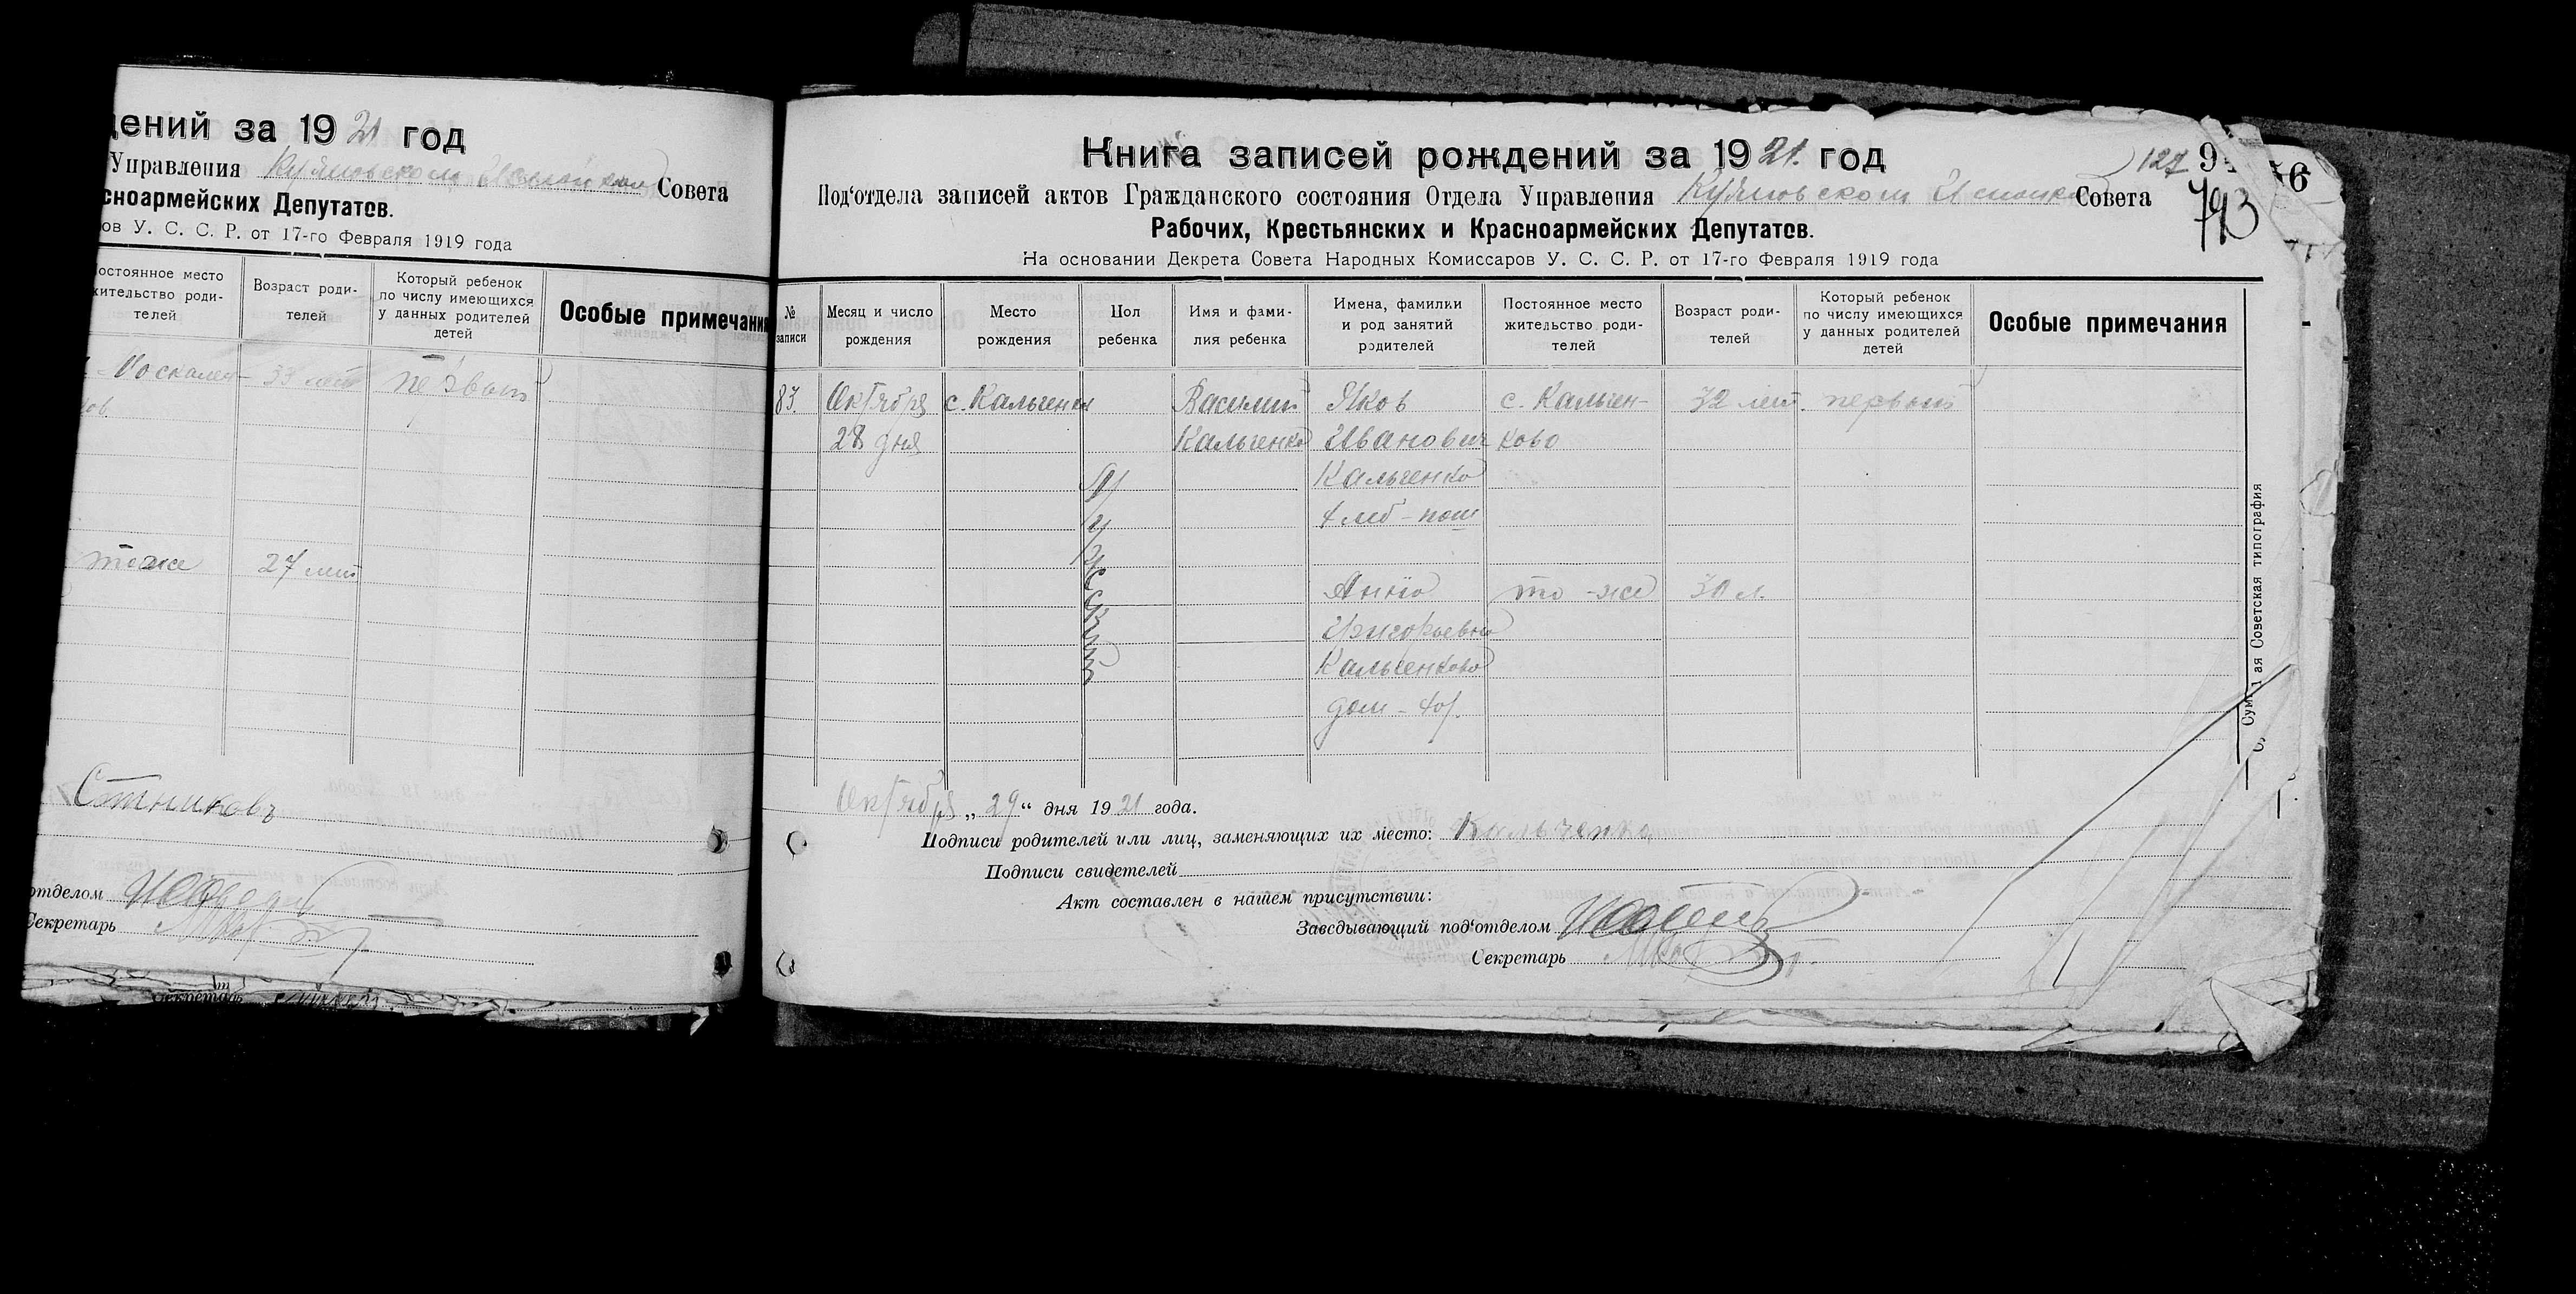 дений за 1921 год
Управления Совета
сноармейских Депутатов.
ов У. С. С. Р. от 17-го Февраля 1919 года
остоянное место
жительство роди-
телей
Возраст роди-
телей
Который ребенок
по числу имеющихся
у данных родителей
детей
Особые примечания
33 лет
первый
тоже
27 лет
Сотниковъ
отделом
Секретарь
Секретарь
Книга записей рождений за 1921. год
127
793
6
Под‘отдела записей актов Гражданского состояния Отдела Управления Совета
Рабочих, Крестьянских и Красноармейских Депутатов.
На основании Декрета Совета Народных Комиссаров У. С. С. Р. от 17-го Февраля 1919 года
№
записи
Месяц и число
рождения
Место
рождения
Пол
ребенка
Имя и фами-
лия ребенка
Имена, фамилии
и род занятий
родителей
Постоянное место
жительство роди-
телей
Возраст роди-
телей
Который ребенок
по числу имеющихся
у данных родителей
детей
Особые примечания
83.
Октября
28 дня
с. Кальченки
Мужеский
Василий
Кальченко
Яков
Иванович
Кальченко
хлеб-паш
с. Кальчен-
ково
32 лет.
первый
Анна
Григорьевна
Кальченкова
дом-хоз.
то-же
30 л.
Октября „29“ дня 1921 года.
Подписи родителей или лиц, заменяющих их место: Кальченко
Подписи свидетелей
Акт составлен в нашем присутствии:
Заведывающий под‘отделом
Секретарь
ая Советская типография